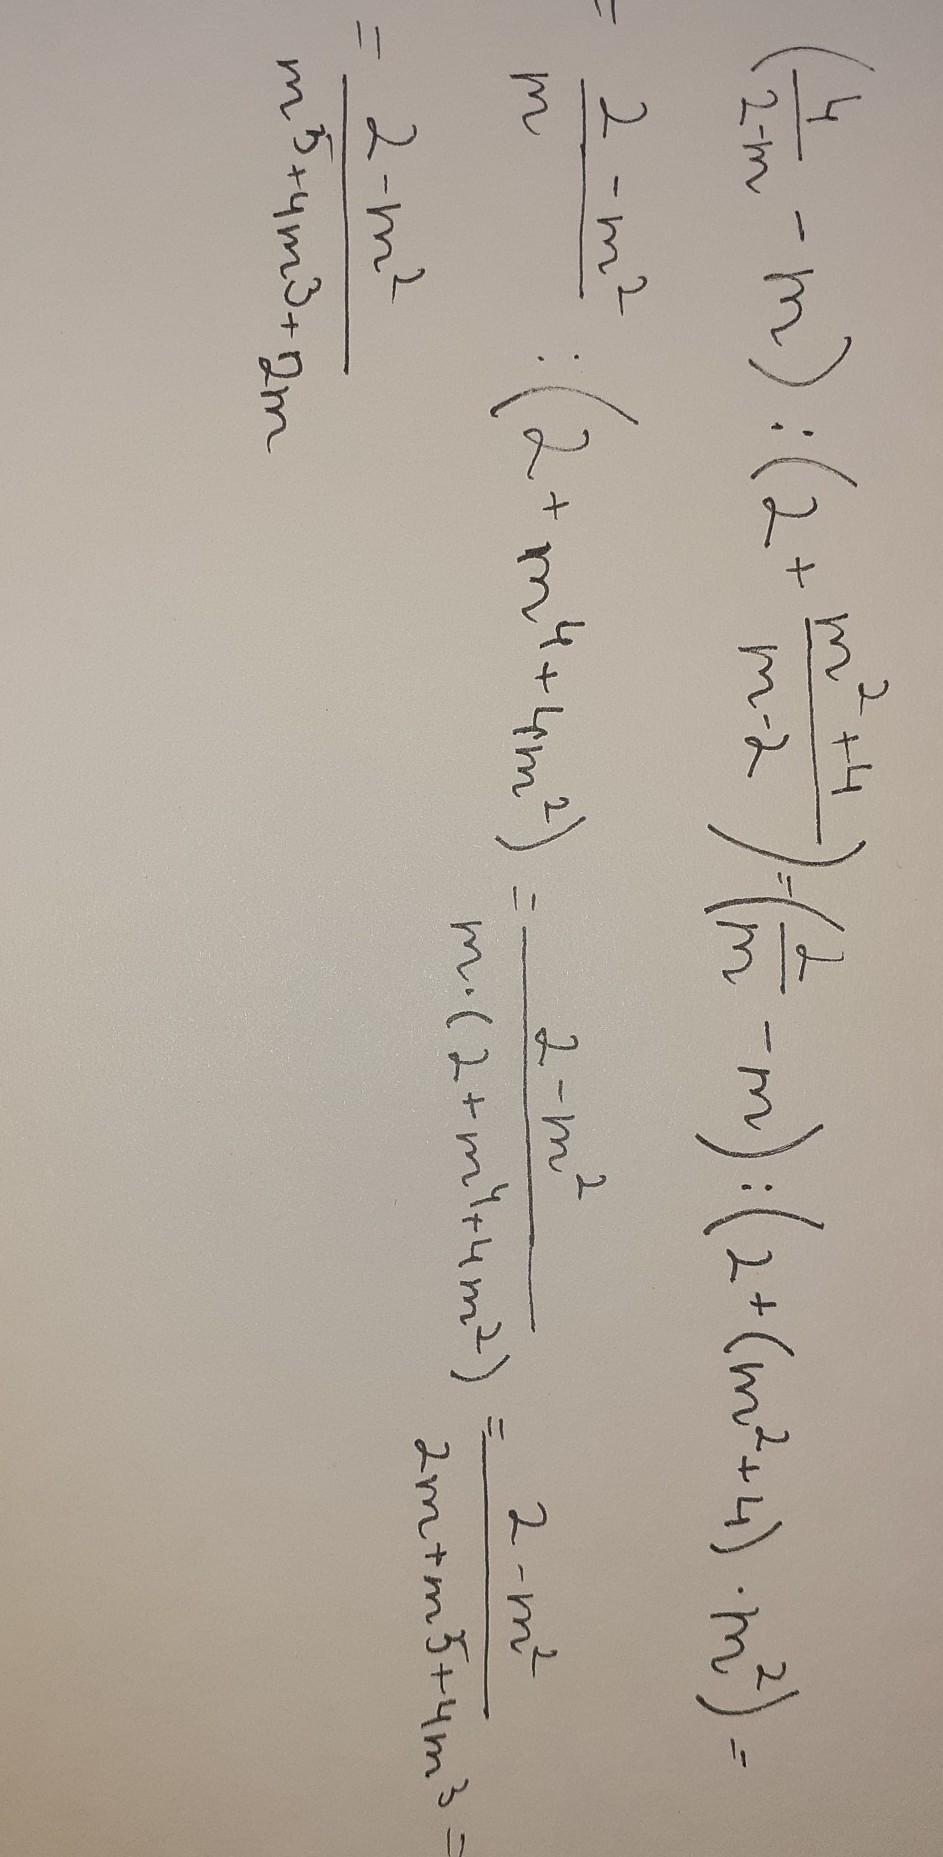 (4/(2-m) - m) : (2 + (m²+4)/(m-2)) = (2/m - m) : (2 + (m²+4) · m²) =
= (2-m²)/m : (2 + m⁴ + 4m²) = (2-m²)/(m·(2+m⁴+4m²)) = (2-m²)/(2m+m⁵+4m³) =
= (2-m²)/(m⁵+4m³+2m)